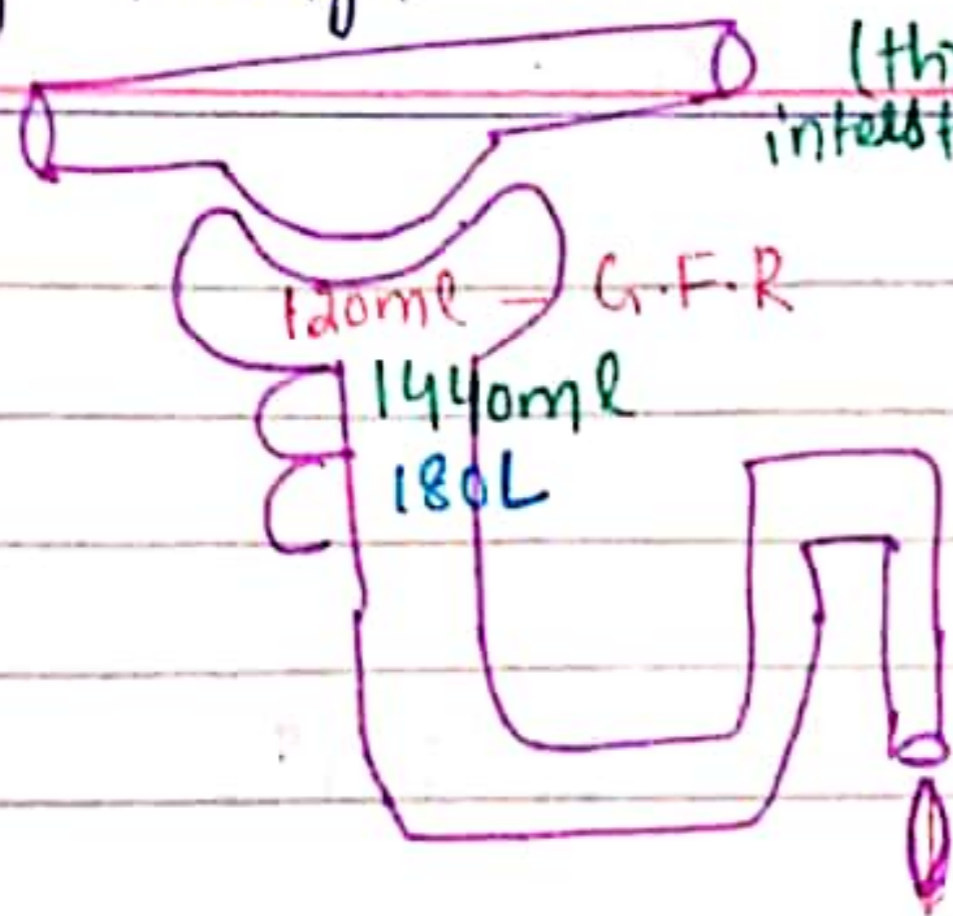 (th
intest
120ml - G.F.R
1440ml
180L